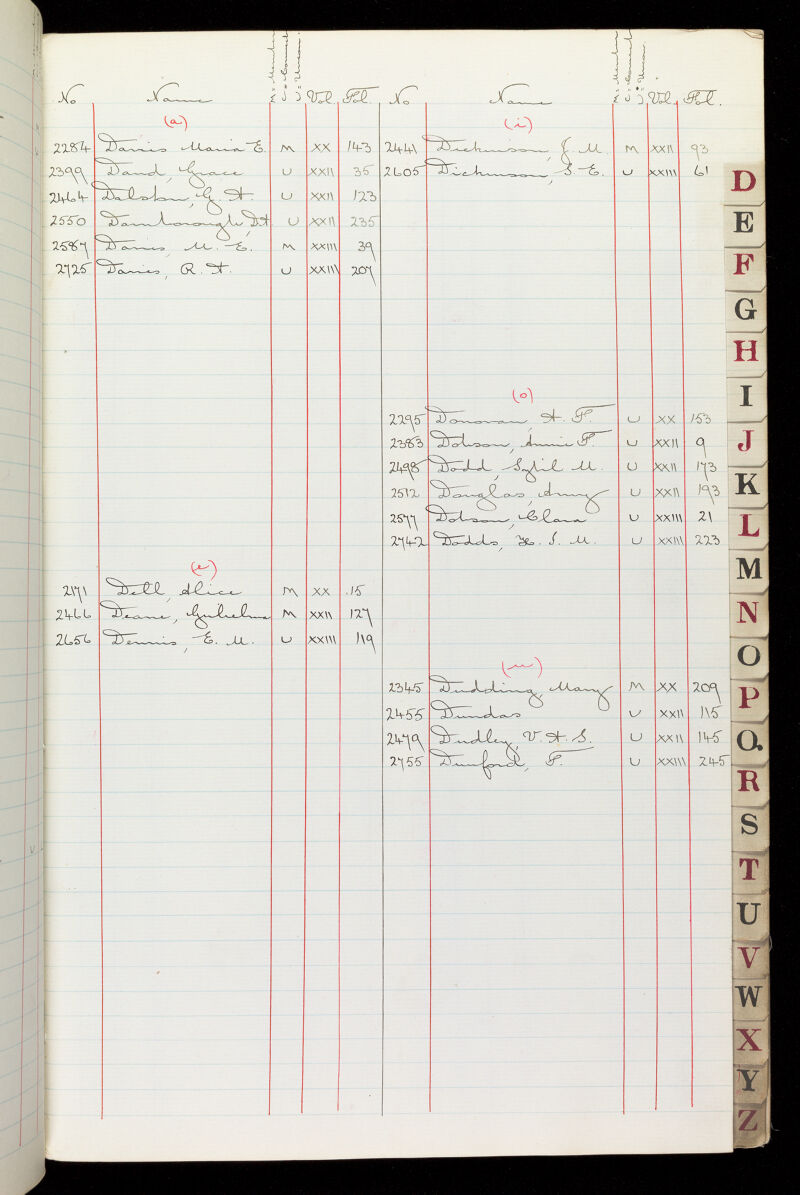 No Name Vol. Fol.
(a)
2284 Davies Maria E. M XX 143
2399 David, Grace U XXII 35
2464 Dalston, G. H. U XXII 123
2550 Damborough, D. H. U XXII 235
2587 Davies, M. E. M XXIII 39
2725 Davies, R. H. U XXIII 207
(e)
2171 Dell, Alice M XX 15
2466 Deane, M XXII 127
2656 Dennis, E. M. U XXIII 119
No Name Vol. Fol.
(i)
2441 Dickinson, J. M. M XXII 93
2605 Dickinson, S. E. U XXIII 61
(o)
2295 Donovan, H. F. U XX 153
2383 Dobson, Annie F. U XXII 9
2498 Dodd, Sybil M. U XXII 173
2512 Douglas, Amy U XXII 193
2577 Dobson, Clara U XXIII 21
2742 Dodds, I. M. U XXIII 223
(u)
2345 Dudding, Mary M XX 209
2455 Dundas U XXII 115
2479 Dudley, V. H. S. U XXII 145
2755 Dunford, F. U XXIII 245
D
E
F
G
H
I
J
K
L
M
N
O
P
Q
R
S
T
U
V
W
X
Y
Z